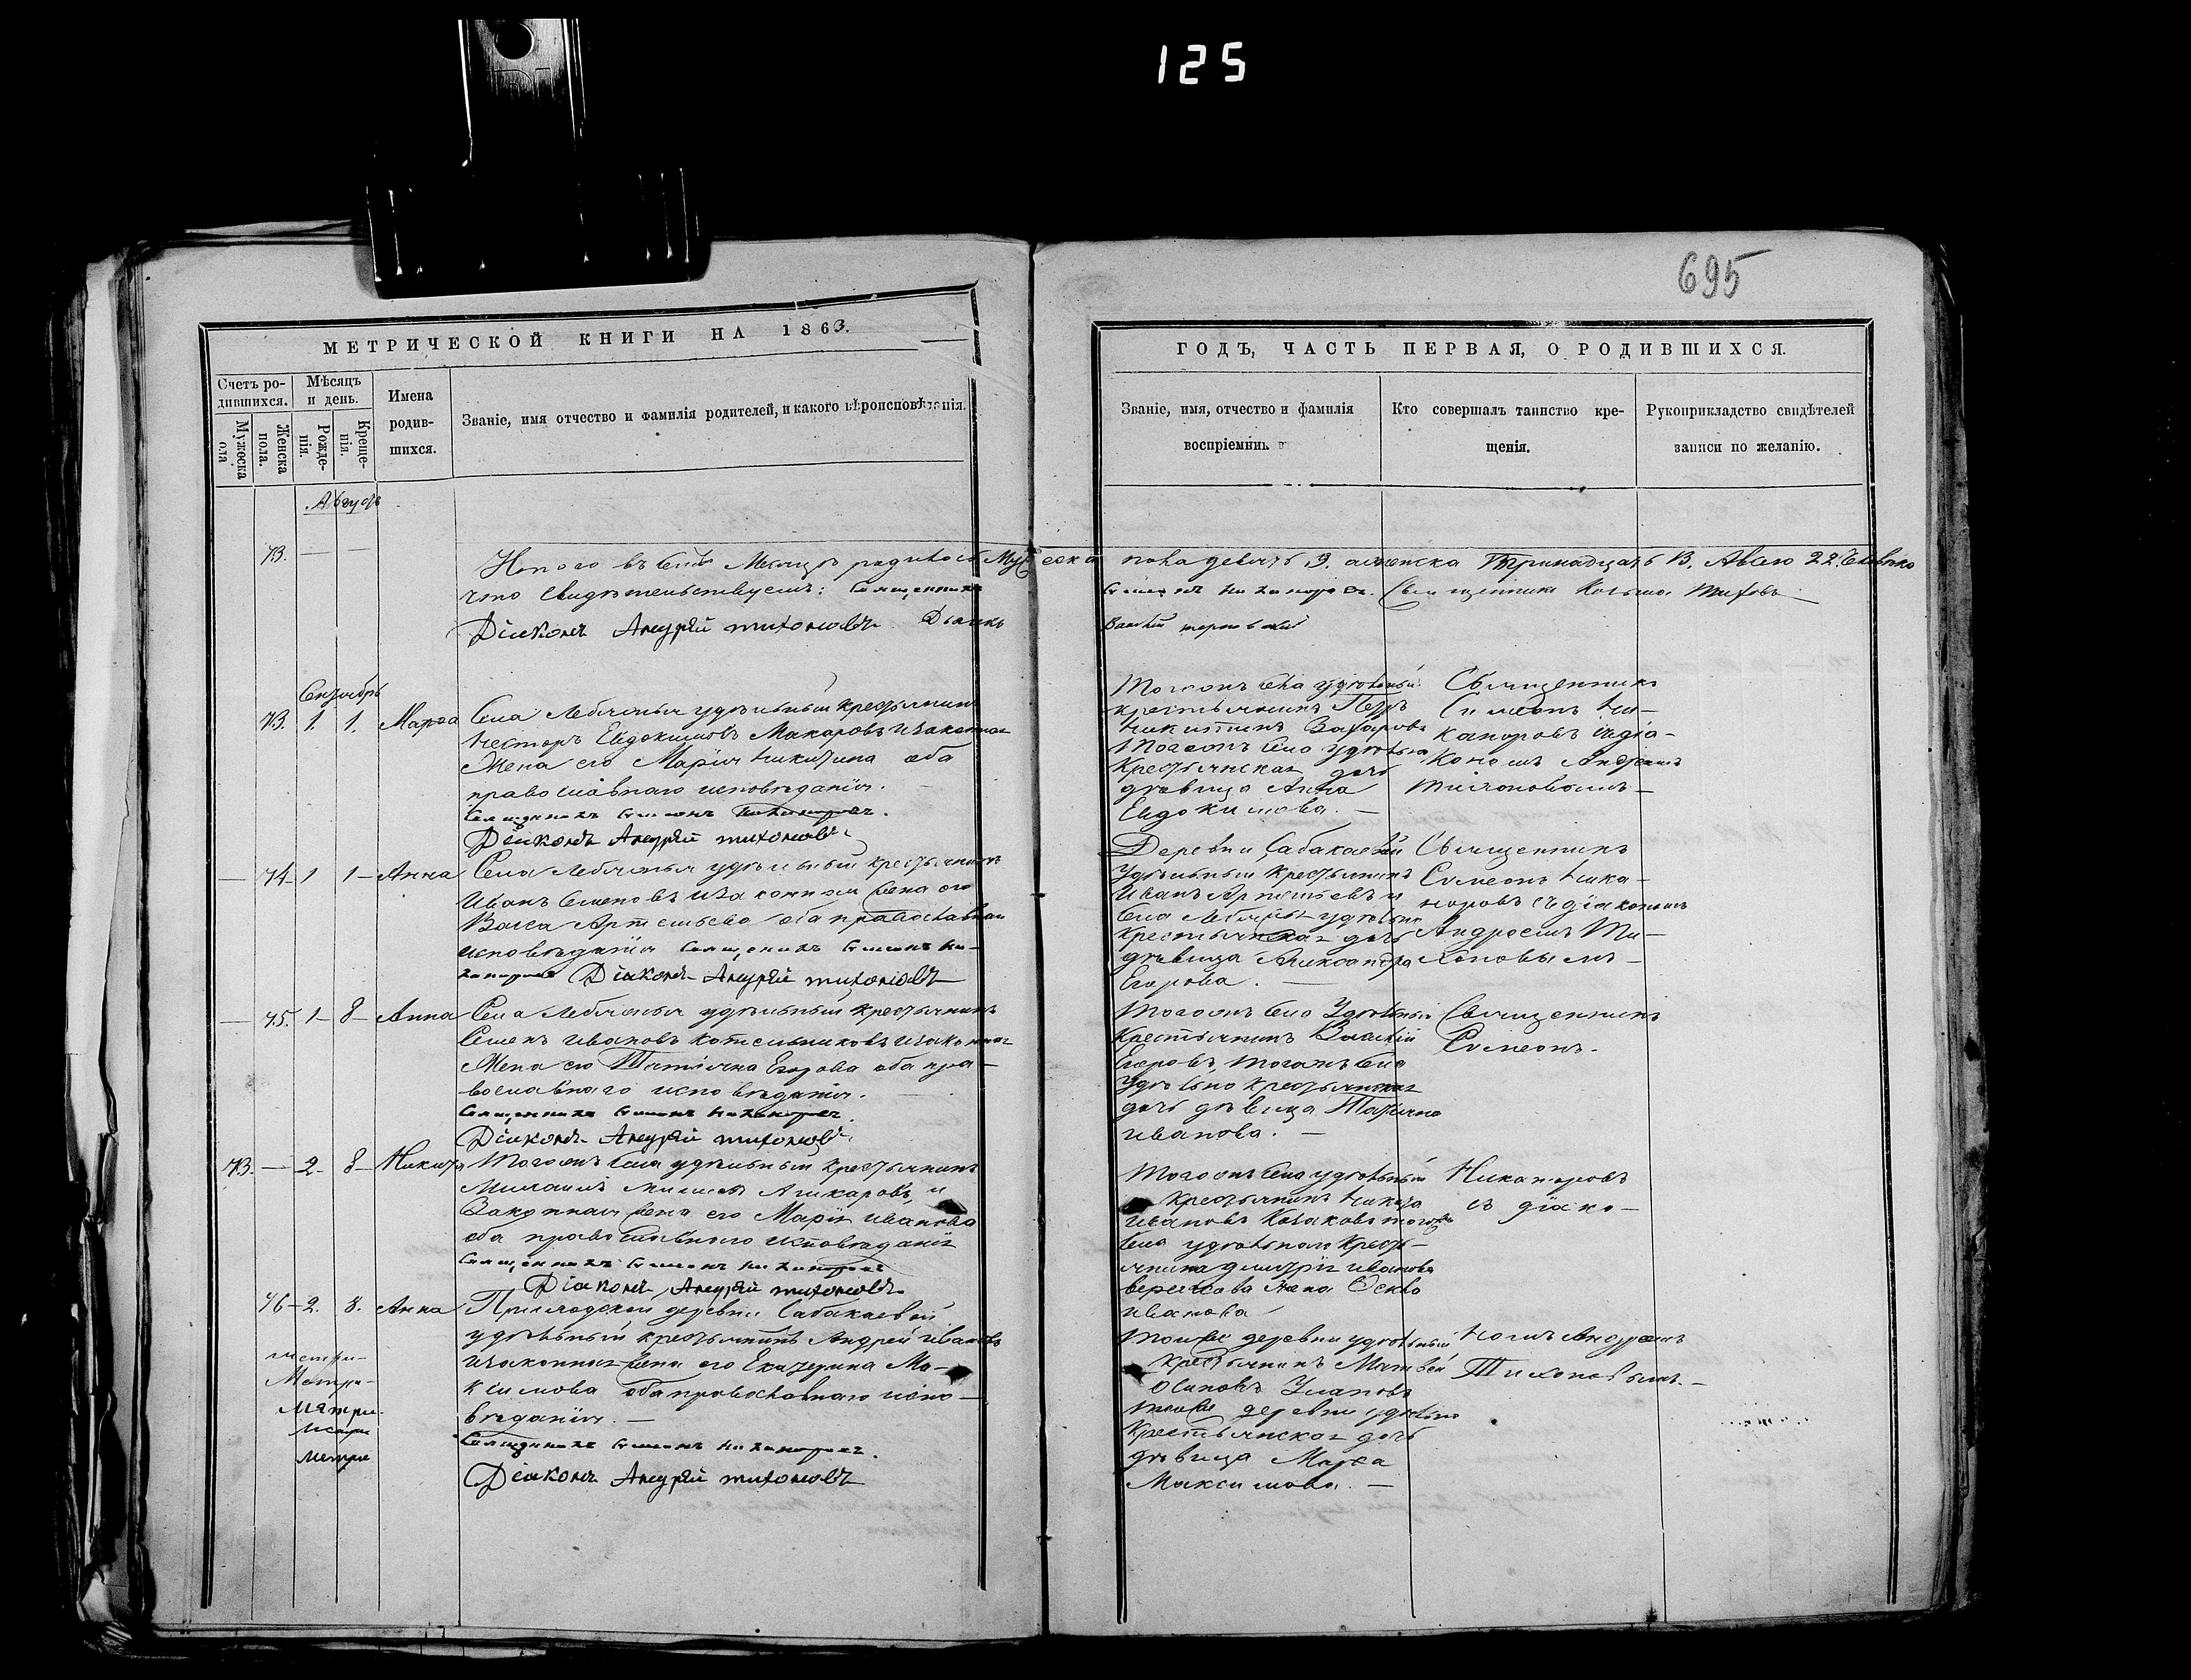 125
695
МЕТРИЧЕСКОЙ КНИГИ НА 1863.
ГОДЪ, ЧАСТЬ ПЕРВАЯ, О РОДИВШИХСЯ.
Счетъ ро-
дившихся.
Мужеска
ола
Женска
пола.
Мѣсяцъ
и день.
Рожде-
нія.
Креще-
нія.
Имена
родив-
шихся.
Званіе, имя отчество и фамилія родителей, и какого вѣроисповѣданія.
Званіе, имя, отчество и фамилія
воспріемник
Кто совершалъ таинство кре-
щенія.
Рукоприкладство свидѣтелей
записи по желанію.
Августъ
73. — —
въ семъ Месяцѣ родилось Мужеска пола девять 9. а женска Тринадцать 13. Всего 22. Человѣка
что свидѣтельствуемъ: Священникъ Симеонъ Никаноровъ. Священникъ Козьма
Діаконъ Андрей Тихоновъ Дьячекъ
Сентябрь
73. 1. 1. Марѳа
Села Лебяжья удѣльный крестьянинъ
Несторъ Евдокимовъ Макаровъ и законная
Жена его Марія Никитина оба
православнаго исповѣданія.
Священникъ Симеонъ Никаноровъ.
Діаконъ Андрей Тихоновъ
Тогожъ села удѣльный
крестьянинъ Петръ
Никитинъ Захаровъ
Тогожъ села удѣльна
Крестьянская дочь
дѣвица Анна
Евдокимова. —
Священникъ
Симеонъ Ни-
каноровъ съ діа-
кономъ Андреемъ
Тихоновымъ —
— 74 — 1 1 — Анна
Села Лебяжья удѣльный крестьянинъ
Иванъ Семеновъ и законная жена его
Васса Артемьева оба православнаго
исповѣданія Священникъ Симеонъ Ни-
каноровъ Діаконъ Андрей Тихоновъ
Деревни Сабакаевой
Удѣльный Крестьянинъ
Иванъ Артемьевъ и
села Лебяжья удѣльно
Крестьянская дочь
дѣвица Александра
Егорова. —
Священникъ
Симеонъ Ника-
норовъ съ діакономъ
Андреемъ Ти-
хоновымъ —
— 75. 1 — 8 — Анна
Села Лебяжья удѣльный крестьянинъ
Семенъ Ивановъ Котельниковъ и законная
Жена его Татіяна Егорова оба пра-
вославнаго исповѣданія.
Священникъ Симеонъ Никаноровъ.
Діаконъ Андрей Тихоновъ
Тогожъ села Удѣльный
Крестьянинъ Василій
Егоровъ, тогожъ села
удѣльно крестьянская
дочь дѣвица Татіяна
Иванова. —
Священникъ
Симеонъ.
73. — 2 — 8 — Никита
Тогожъ села удѣльный крестьянинъ
Михаилъ и
Законная жена его Марія Иванова
оба православнаго исповѣданія
Священникъ Симеонъ Никаноровъ
Діаконъ Андрей Тихоновъ
Тогожъ села удѣльный
Крестьянинъ Никита
Ивановъ Казаковъ тогожъ
села удѣльнаго Кресть-
янина Димитрія Иванова
жена
Иванова
Никаноровъ
съ діако-
76 — 2. 8. Анна
Приходской деревни Сабакаевой
удѣльный крестьянинъ Андрей Ивановъ
и законная жена его Екатерина Ма-
ксимова оба православнаго испо-
вѣданія. —
Священникъ Симеонъ Никаноровъ.
Діаконъ Андрей Тихоновъ
Тойже деревни удѣльный
крестьянинъ Матвей
Осиповъ
тойже деревни удѣльно
Крестьянская дочь
дѣвица Марѳа
Максимова. —
номъ Андреемъ
Тихоновымъ. —
метри-
Метри-
Метри-
метри
метри